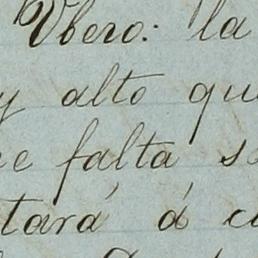 Vbero: la
y alto qu
e falta s
tará á c